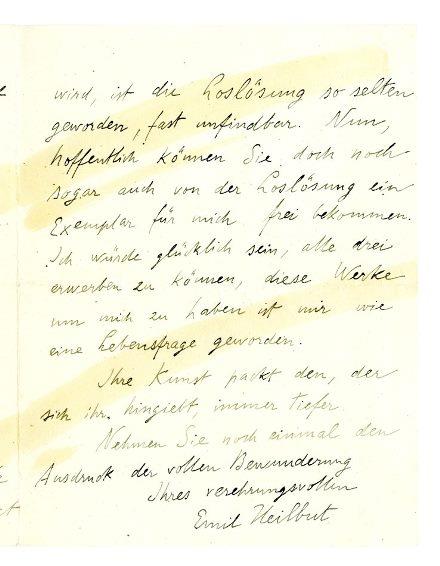 wird, ist die Loslösung so selten
geworden, fast unfindbar. Nun,
hoffentlich können Sie doch noch
sogar auch von der Loslösung ein
Exemplar für mich frei bekommen.
Ich würde glücklich sein, alle drei
erwerben zu können, diese Werke
um mich zu haben ist mir wie
eine Lebensfrage geworden.
Ihre Kunst packt den, der
sich ihr hingiebt, immer tiefer.
Nehmen Sie noch einmal den
Ausdruck der vollen Bewunderung
Ihres verehrungsvollen
Emil Heilbut